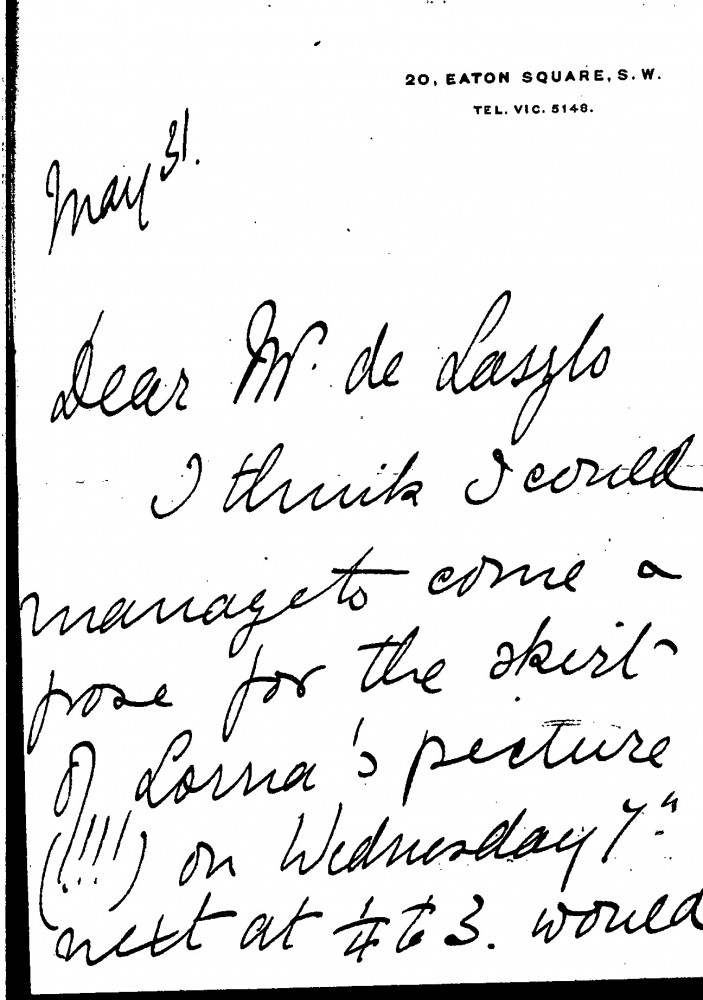 20, EATON SQUARE, S.W.
TEL. VIC. 5148.
May 31.
Dear Mr. de Laszlo
I think I could
manage to come a
pose for the skirt
of Lorna's picture
(!!!!) on Wednesday 7th
next at 1/4 to 3. would